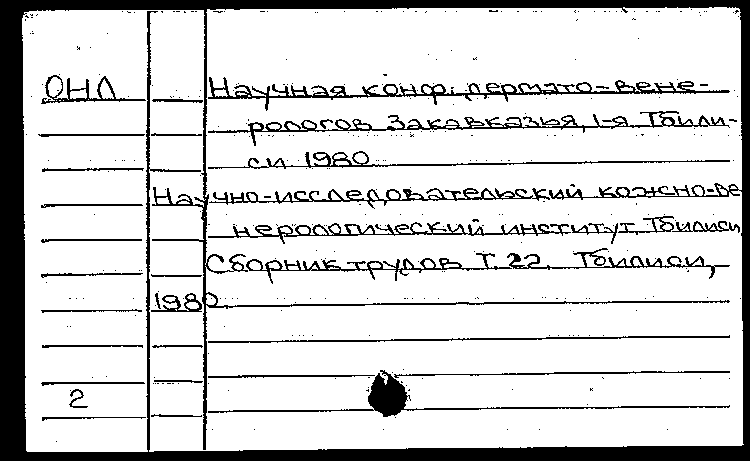 ОНЛ
Научная конф. дермато-вене-
рологов Закавказья, 1-я. Тбили-
си. 1980
Научно-исследовательский кожно-ве
нерологический институт. Тбилиси.
Сборник трудов Т. 22. Тбилиси,
1980.
2